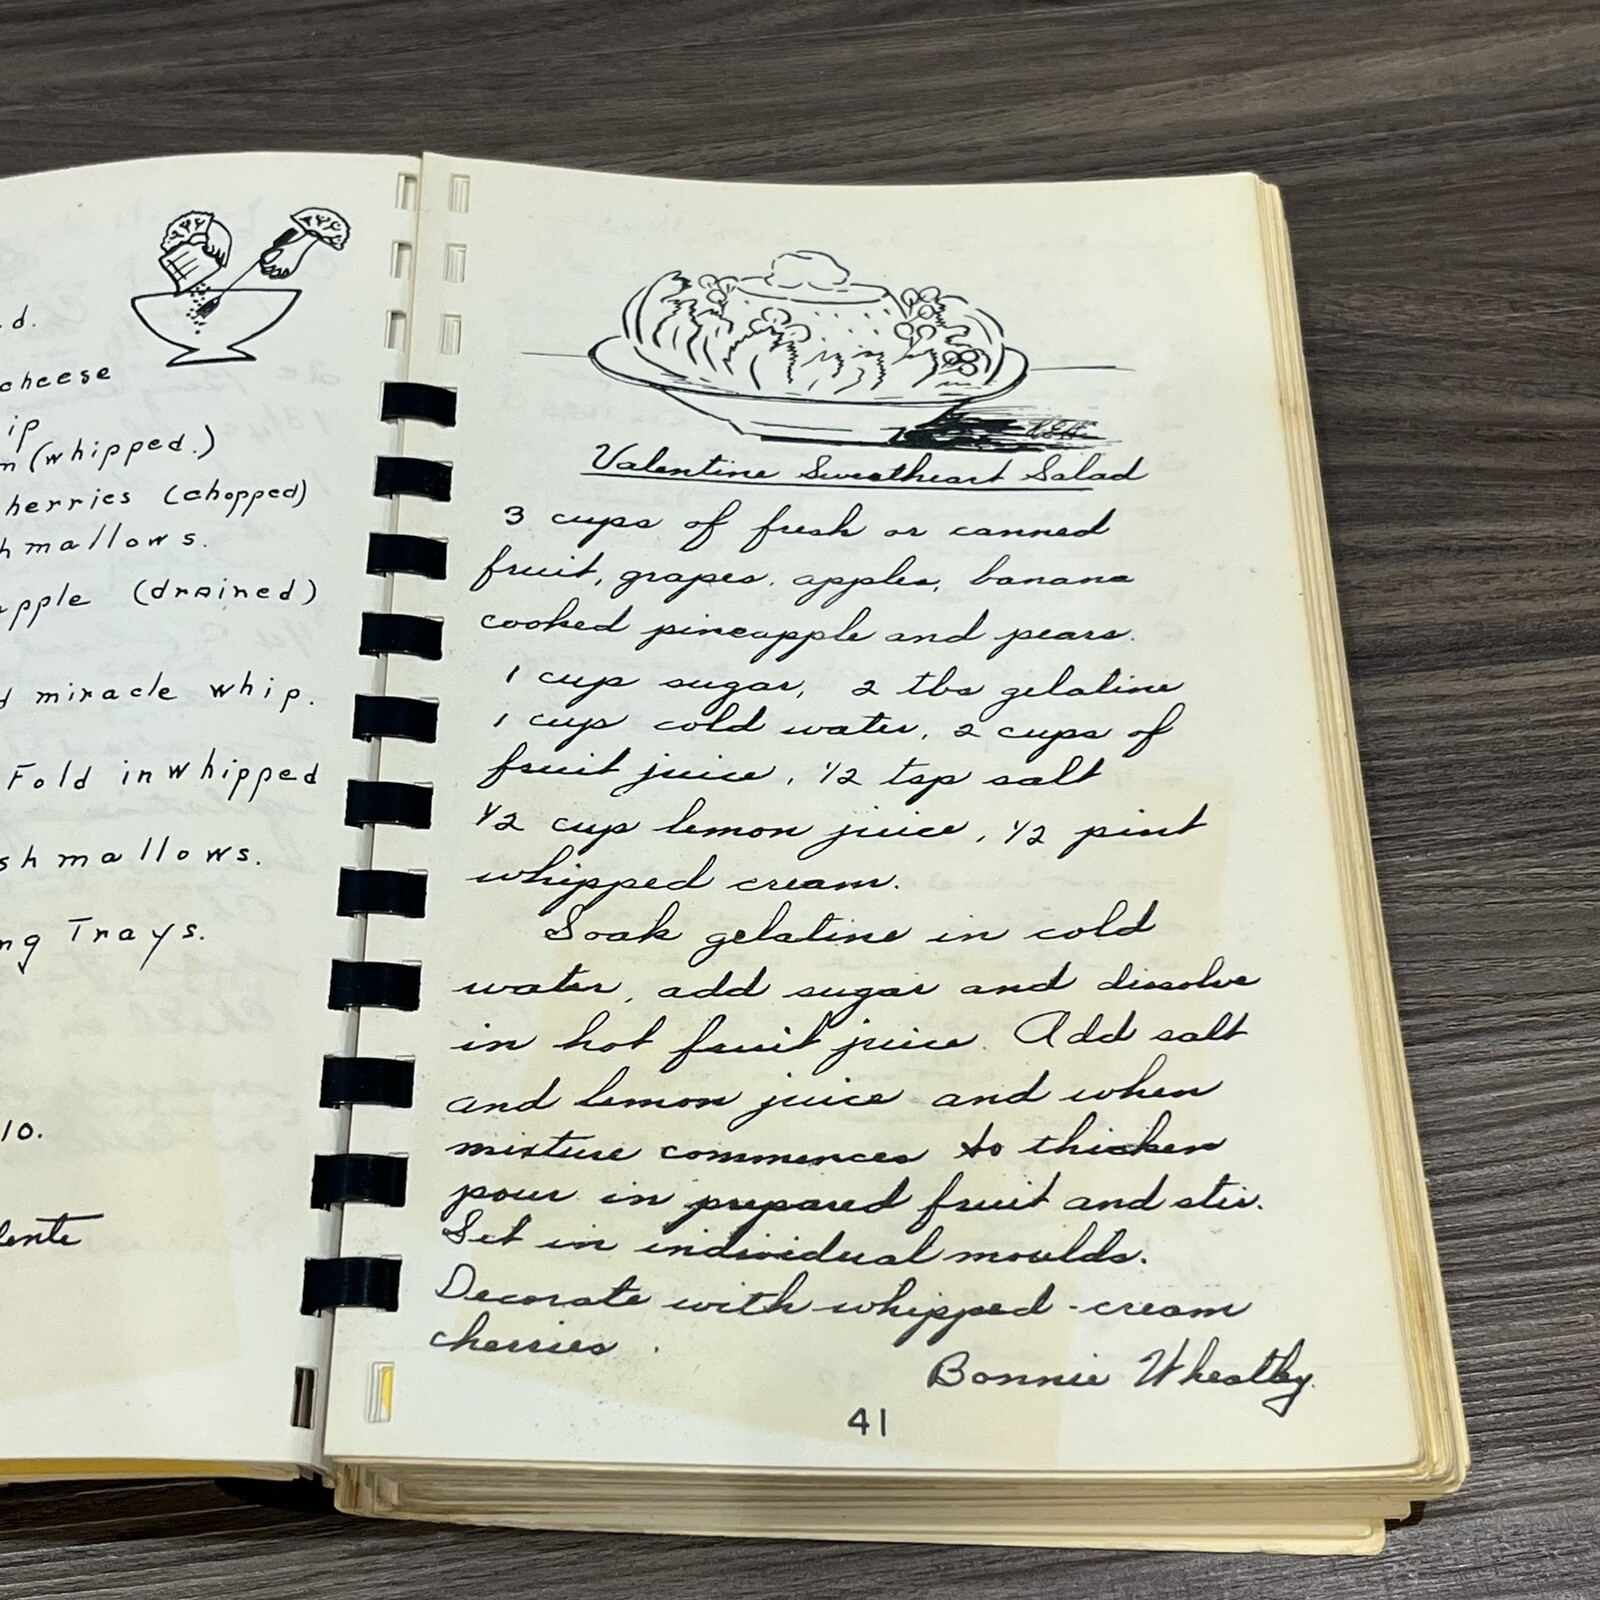 .d.
cheese
ip
m (whipped.)
herries (chopped)
hmallows.
apple (drained)
d miracle whip.
Fold in whipped
shmallows.
ng Trays.
10.
lente
Valentine Sweetheart Salad
3 cups of fresh or canned
fruit, grapes, apples, banana
cooked pineapple and pears.
1 cup sugar, 2 tbs gelatine
1 cup cold water, 2 cups of
fruit juice, 1/2 tsp salt
1/2 cup lemon juice, 1/2 pint
whipped cream.
Soak gelatine in cold
water, add sugar and dissolve
in hot fruit juice. Add salt
and lemon juice and when
mixture commences to thicken
pour in prepared fruit and stir.
Set in individual moulds.
Decorate with whipped-cream
cherries.
Bonnie Wheatley.
41